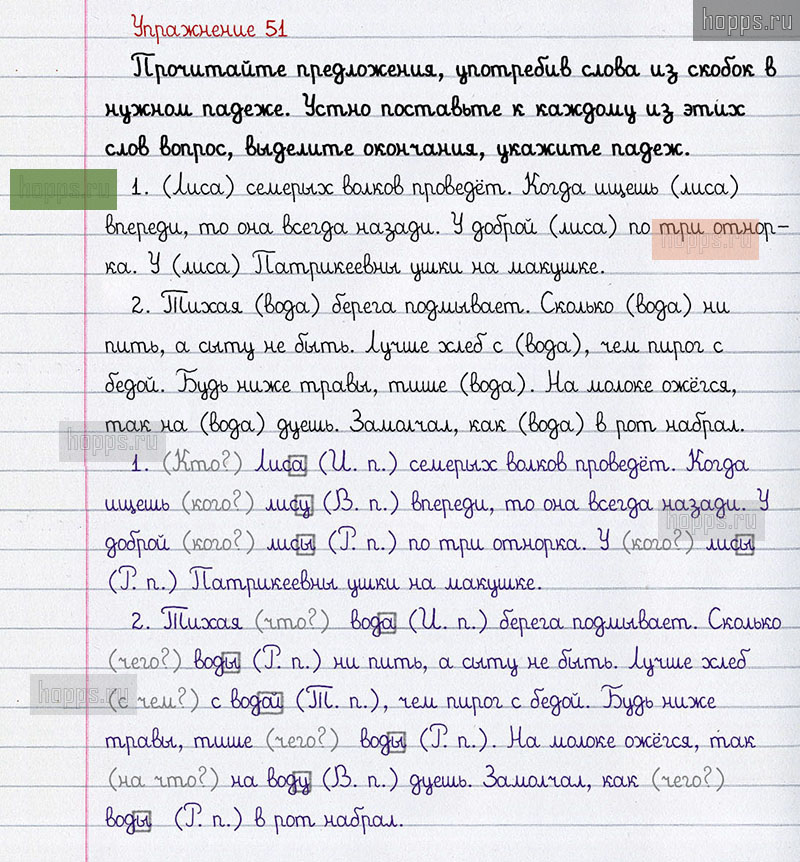 hopps.ru
Упражнение 51
Прочитайте предложения, употребив слова из скобок в
нужном падеже. Устно поставьте к каждому из этих
слов вопрос, выделите окончания, укажите падеж.
hopps.ru
1. (Лиса) семерых волков проведёт. Когда ищешь (лиса)
впереди, то она всегда назади. У доброй (лиса) по три отнор-
hopps.ru
ка. У (лиса) Патрикеевны ушки на макушке.
2. Тихая (вода) берега подмывает. Сколько (вода) ни
пить, а сыту не быть. Лучше хлеб с (вода), чем пирог с
бедой. Будь ниже травы, тише (вода). На молоке ожёгся,
так на (вода) дуешь. Замолчал, как (вода) в рот набрал.
hopps.ru
1. (Кто?) Лиса (И. п.) семерых волков проведёт. Когда
ищешь (кого?) лису (В. п.) впереди, то она всегда назади. У
hopps.ru
доброй (кого?) лисы (Р. п.) по три отнорка. У (кого?) лисы
(Р. п.) Патрикеевны ушки на макушке.
2. Тихая (что?) вода (И. п.) берега подмывает. Сколько
(чего?) воды (Р. п.) ни пить, а сыту не быть. Лучше хлеб
hopps.ru
(с чем?) с водой (Т. п.), чем пирог с бедой. Будь ниже
травы, тише (чего?) воды (Р. п.). На молоке ожёгся, так
(на что?) на воду (В. п.) дуешь. Замолчал, как (чего?)
воды (Р. п.) в рот набрал.